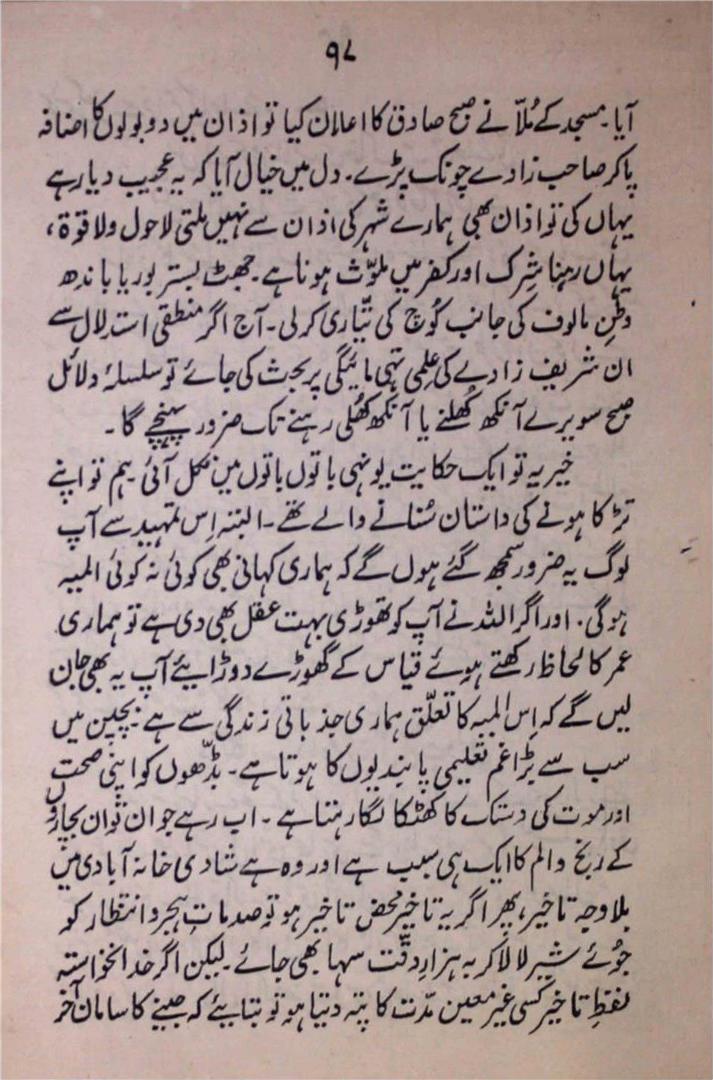 ۹۸
آیا۔ مسجد کے مُلّا نے صبح صادق کا اعلان کیا تو اذان میں دو بولوں کا اضافہ
پا کر صاحب زادے چونک پڑے۔ دل میں خیال آیا کہ یہ عجیب دیار ہے
یہاں کی تو اذان بھی ہمارے شہر کی اذان سے نہیں ملتی لاحول ولا قوۃ،
یہاں رہنا شِرک اور کفر میں ملوّث ہونا ہے۔ جھٹ بستر بوریا باندھ
وطنِ مالوف کی جانب کُوچ کی تیّاری کر لی۔ آج اگر منطقی استدلال سے
ان شریف زادے کی علِمی تہی مائیگی پر بحث کی جائے تو سلسلۂ دلائل
صبح سویرے آنکھ کھلنے یا آنکھ کھُلی رہنے تک ضرور پہنچے گا۔
خیر یہ تو ایک حکایت یونہی باتوں باتوں میں نکل آئی۔ ہم تو اپنے
تڑکا ہونے کی داستان سُنانے والے تھے۔ البتہ اِس تمہید سے آپ
لوگ یہ ضرور سمجھ گئے ہوں گے کہ ہماری کہانی بھی کوئی نہ کوئی المیہ
ہوگی۔ اور اگر اللہ نے آپ کو تھوڑی بہت عقل بھی دی ہے تو ہماری
عمر کا لحاظ رکھتے ہوئے قیاس کے گھوڑے دوڑائیے آپ یہ بھی جان
لیں گے کہ اِس المیہ کا تعلّق ہماری جذباتی زندگی سے ہے۔ بچپن میں
سب سے بڑا غم تعلیمی پابندیوں کا ہوتا ہے۔ بڈّھوں کو اپنی صحت
اور موت کی دستک کا کھٹکا لگا رہتا ہے۔ اب رہے جوان تو ان بچاروں
کے رنج و الم کا ایک ہی سبب ہے اور وہ ہے شادی خانہ آبادی میں
بلاوجہ تاخیر، پھر اگر یہ تاخیر محض تاخیر ہو تو صدماتِ ہجر و انتظار کو
جُوئے شیر لا لا کر بہ ہزار دقّت سہا بھی جائے۔ لیکن اگر خدانخواستہ
لفظِ تاخیر کسی غیر معین مدّت کا پتہ دیتا ہو تو بتائیے کہ جینے کا سامان آخر